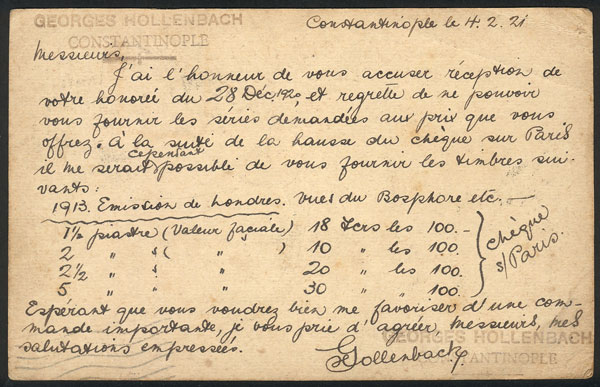 GEORGES HOLLENBACH
CONSTANTINOPLE
Constantinople le 4.2.21
Messieurs,
J'ai l'honneur de vous accuser réception de
votre honorée du 28 Déc. 1920, et regrette de ne pouvoir
vous fournir les séries demandées aux prix que vous
offrez. à la suite de la hausse du chèque sur Paris
il me serait cependant possible de vous fournir les timbres sui-
vants:
1913. Emission de Londres. Vues du Bosphore etc.
1½ piastre (Valeur façiale) 18 Fcrs les 100.-
2 " ( " ) 10 " les 100.
2½ " " 20 " les 100.
5 " " 30 " les 100.
chèque
s/Paris.
Espérant que vous voudrez bien me favoriser d'une com-
mande importante, je vous prie d'agréer, Messieurs, mes
salutations empressées.
GHollenbach
GEORGES HOLLENBACH
CONSTANTINOPLE